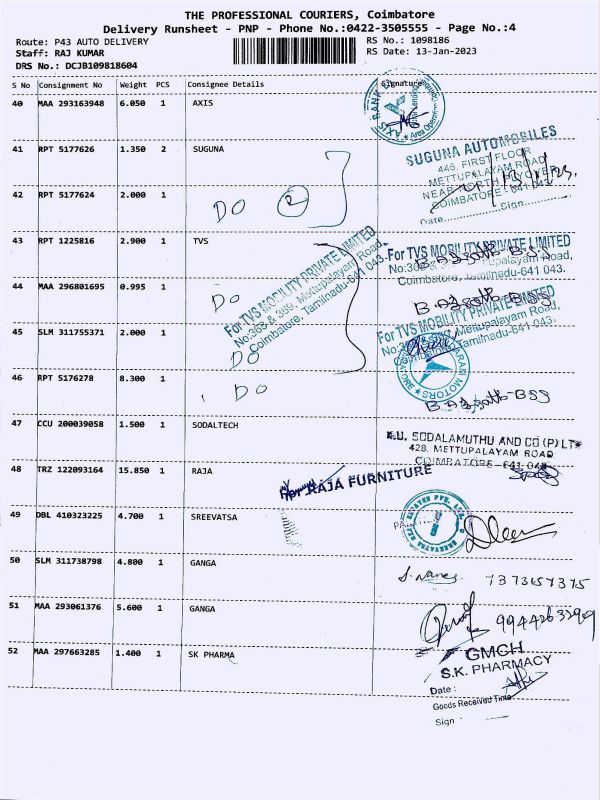 THE PROFESSIONAL COURIERS, Coimbatore
Delivery Runsheet - PNP - Phone No.:0422-3505555 - Page No.:4
Route: P43 AUTO DELIVERY
RS No.: 1098186
Staff: RAJ KUMAR
RS Date: 13-Jan-2023
DRS No.: DCJB109818604
S No Consignment No Weight PCS Consignee Details Signature
40 MAA 293163948 6.050 1 AXIS
AXIS BANK
41 RPT 5177626 1.350 2 SUGUNA
SUGUNA AUTOMOBILES
446, FIRST FLOOR
METTUPALAYAM ROAD
COIMBATORE - 641 043.
Date Sign
42 RPT 5177624 2.000 1
DO 2
43 RPT 1225816 2.900 1 TVS
For TVS MOBILITY PRIVATE LIMITED
No:368 & 369, Mettupalayam Road,
Coimbatore, Tamilnadu-641 043.
For TVS MOBILITY PRIVATE LIMITED
Coimbatore, Tamilnadu-641 043.
44 MAA 296801695 0.995 1
DO
For TVS MOBILITY PRIVATE LIMITED
Mettupalayam Road,
Tamilnadu-641 043.
45 SLM 311755371 2.000 1
DO
MOTORS
46 RPT 5176278 8.300 1
DO
47 CCU 200039058 1.500 1 SODALTECH
A.U. SODALAMUTHU AND CO (P) LTD
428, METTUPALAYAM ROAD
COIMBATORE - 641 043
48 TRZ 122093164 15.850 1 RAJA
For RAJA FURNITURE
49 DBL 410323225 4.700 1 SREEVATSA
50 SLM 311738798 4.800 1 GANGA
7373157375
51 MAA 293061376 5.600 1 GANGA
52 MAA 297663285 1.400 1 SK PHARMA
GMCH
S.K. PHARMACY
Date :
Goods Received Time
Sign